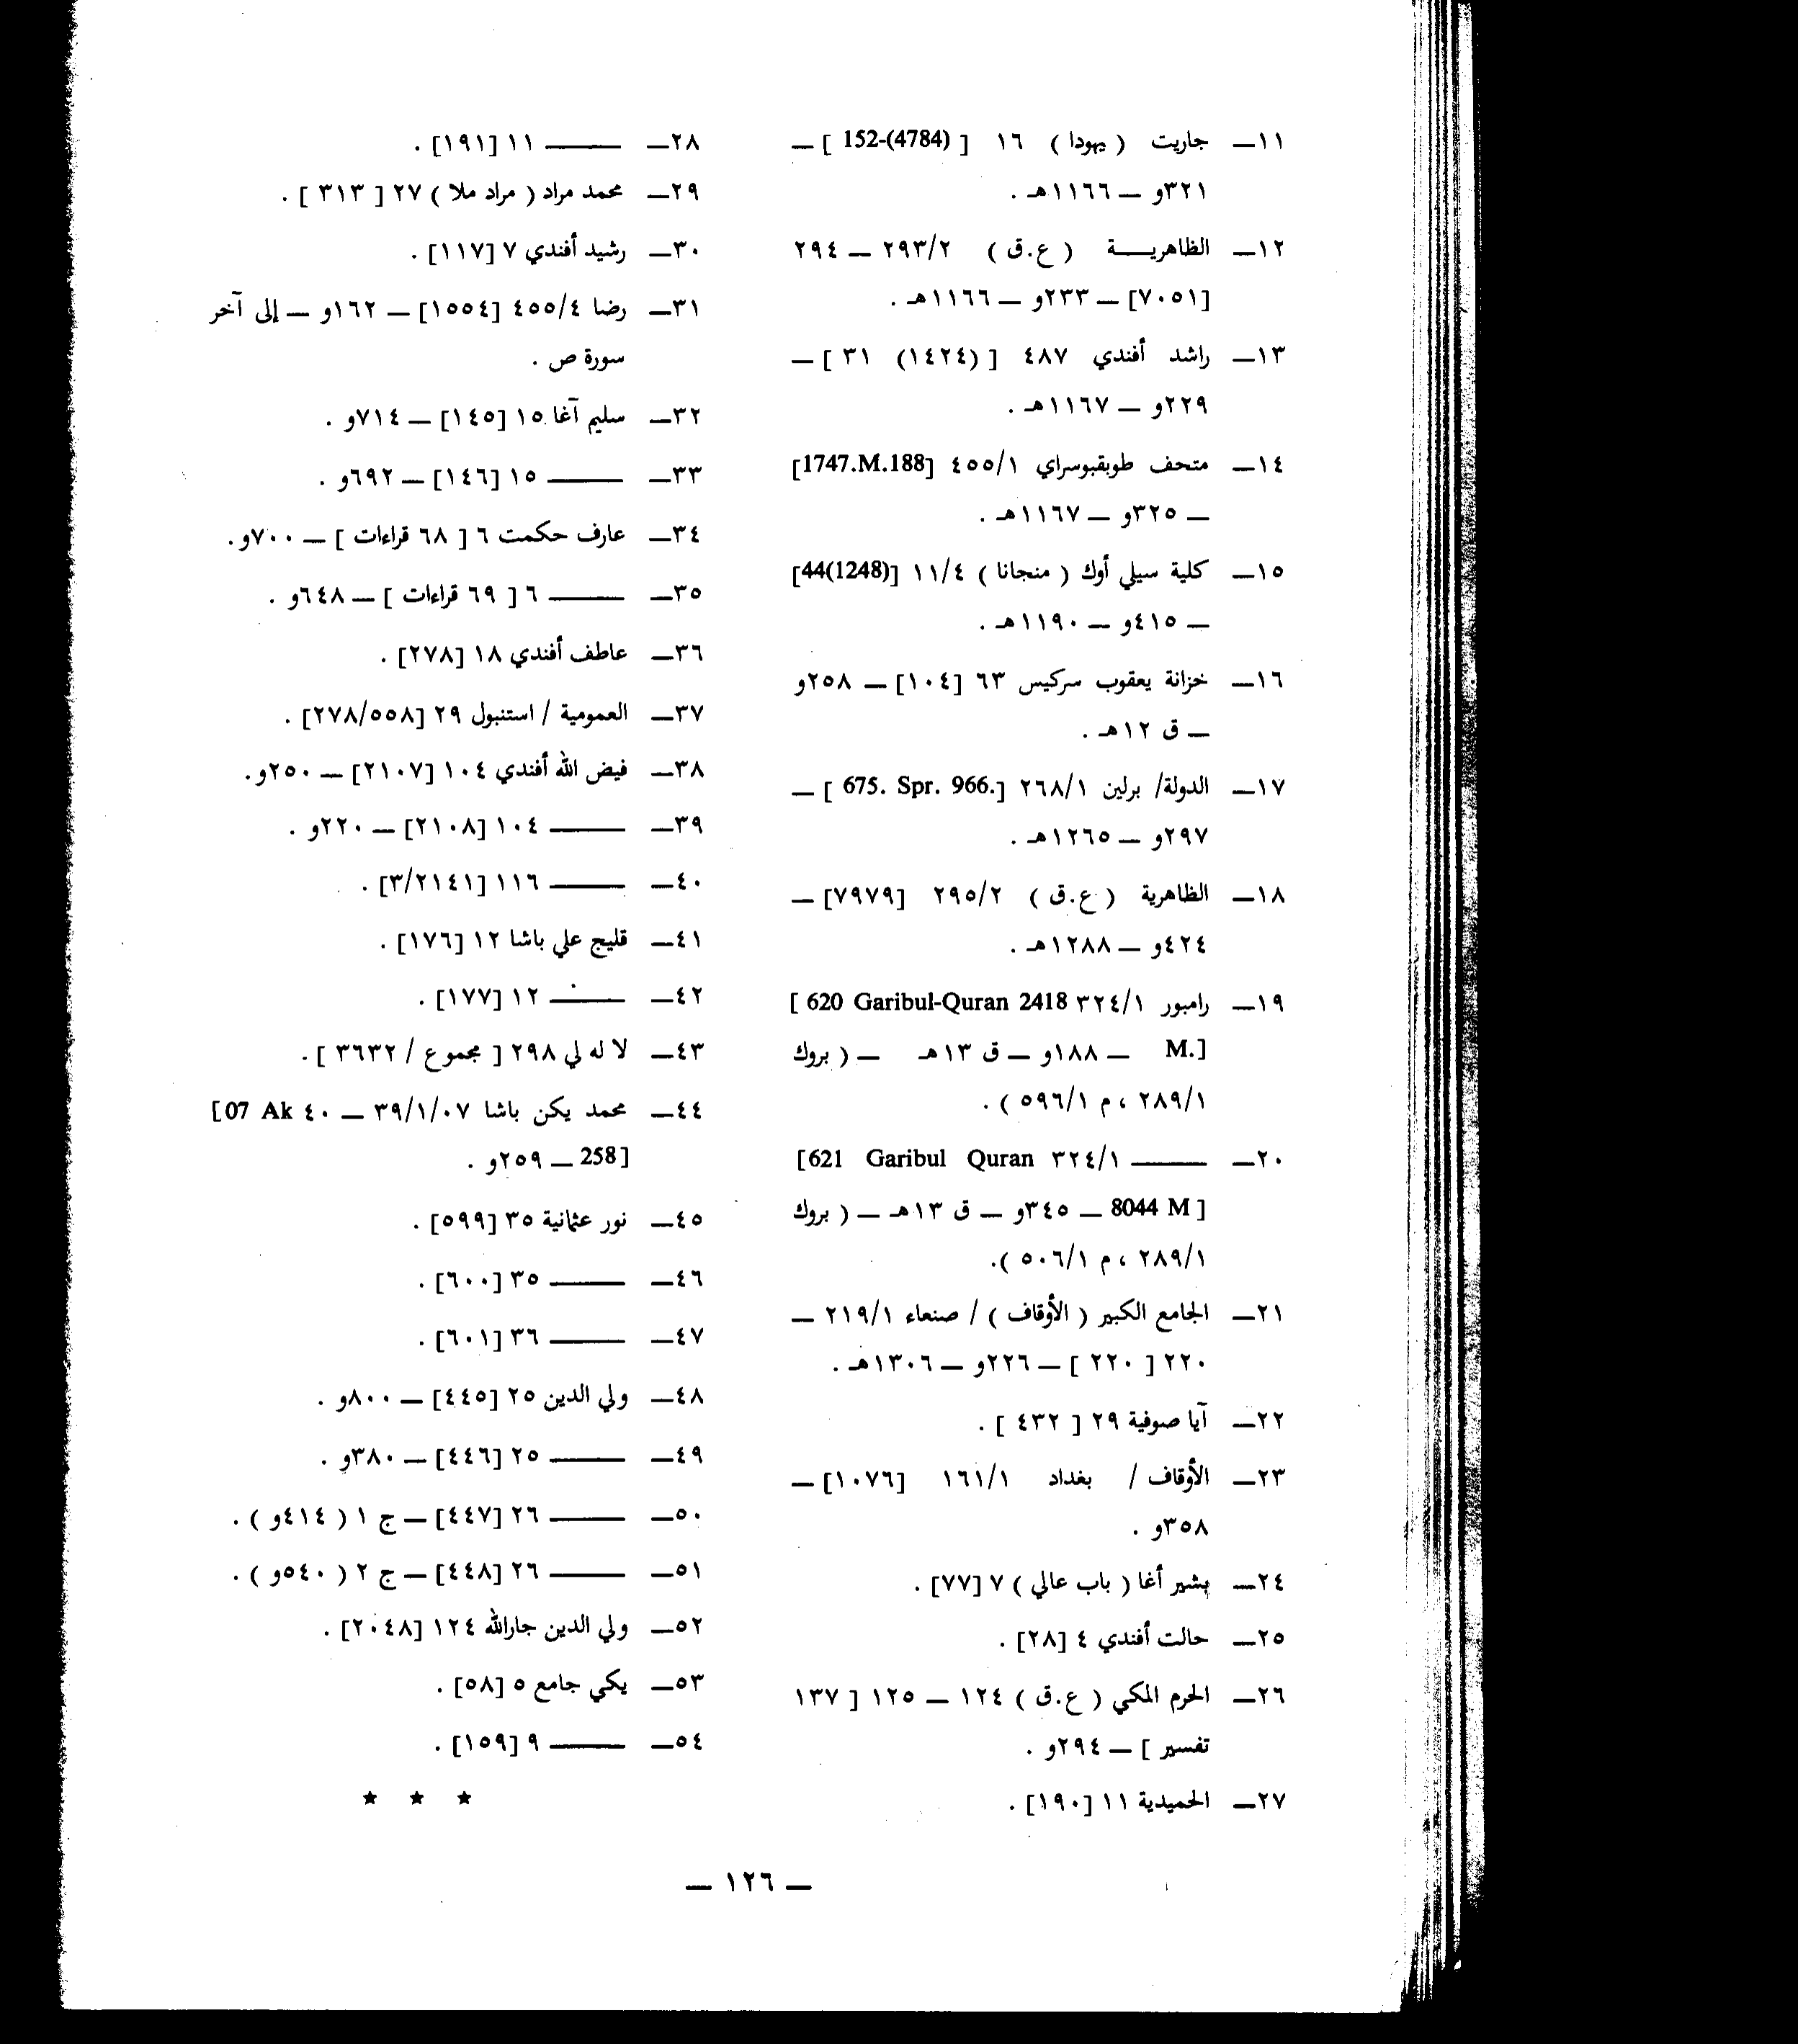 ١١ــ جاريت ( يهودا ) ١٦ [ 152-(4784) ] ــ
٣٢١و ــ ١١٦٦هـ .
١٢ــ الظاهريــــة ( ع.ق ) ٢٩٣/٢ ــ ٢٩٤
[٧٠٥١] ــ ٢٣٣و ــ ١١٦٦هـ .
١٣ــ راشد أفندي ٤٨٧ [ (١٤٢٤) ٣١ ] ــ
٢٢٩و ــ ١١٦٧هـ .
١٤ــ متحف طوبقبوسراي ٤٥٥/١ [1747.M.188]
ــ ٣٢٥و ــ ١١٦٧هـ .
١٥ــ كلية سيلي أوك ( منجانا ) ١١/٤ [44(1248)]
ــ ٤١٥و ــ ١١٩٠هـ .
١٦ــ خزانة يعقوب سركيس ٦٣ [١٠٤] ــ ٢٥٨و
ــ ق ١٢هـ .
١٧ــ الدولة/ برلين ٢٦٨/١ [675. Spr. 966.] ــ
٢٩٧و ــ ١٢٦٥هـ .
١٨ــ الظاهرية ( ع.ق ) ٢٩٥/٢ [٧٩٧٩] ــ
٤٢٤و ــ ١٢٨٨هـ .
١٩ــ رامبور ٣٢٤/١ [ 620 Garibul-Quran 2418
M.] ــ ١٨٨و ــ ق ١٣هـ ــ ( بروك
٢٨٩/١ ، م ٥٩٦/١ ) .
٢٠ــ ـــــــ ٣٢٤/١ [621 Garibul Quran
8044 M ] ــ ٣٤٥و ــ ق ١٣هـ ــ ( بروك
٢٨٩/١ ، م ٥٠٦/١ ).
٢١ــ الجامع الكبير ( الأوقاف ) / صنعاء ٢١٩/١ ــ
٢٢٠ [ ٢٢٠ ] ــ ٢٢٦و ــ ١٣٠٦هـ .
٢٢ــ آيا صوفية ٢٩ [ ٤٣٢ ] .
٢٣ــ الأوقاف / بغداد ١٦١/١ [١٠٧٦] ــ
٣٥٨و .
٢٤ــ بشير أغا ( باب عالي ) ٧ [٧٧] .
٢٥ــ حالت أفندي ٤ [٢٨] .
٢٦ــ الحرم المكي ( ع.ق ) ١٢٤ ــ ١٢٥ [ ١٣٧
تفسير ] ــ ٢٩٤و .
٢٧ــ الحميدية ١١ [١٩٠] .
٢٨ــ ـــــــ ١١ [١٩١] .
٢٩ــ محمد مراد ( مراد ملا ) ٢٧ [ ٣١٣ ] .
٣٠ــ رشيد أفندي ٧ [١١٧] .
٣١ــ رضا ٤٥٥/٤ [١٥٥٤] ــ ١٦٢و ــ إلى آخر
سورة ص .
٣٢ــ سليم آغا ١٥ [١٤٥] ــ ٧١٤و .
٣٣ــ ـــــــ ١٥ [١٤٦] ــ ٦٩٢و .
٣٤ــ عارف حكمت ٦ [ ٦٨ قراءات ] ــ ٧٠٠و.
٣٥ــ ـــــــ ٦ [ ٦٩ قراءات ] ــ ٦٤٨و .
٣٦ــ عاطف أفندي ١٨ [٢٧٨] .
٣٧ــ العمومية / استنبول ٢٩ [٢٧٨/٥٥٨] .
٣٨ــ فيض الله أفندي ١٠٤ [٢١٠٧] ــ ٢٥٠و.
٣٩ــ ـــــــ ١٠٤ [٢١٠٨] ــ ٢٢٠و .
٤٠ــ ـــــــ ١١٦ [٣/٢١٤١] .
٤١ــ قليج علي باشا ١٢ [١٧٦] .
٤٢ــ ـــــــ ١٢ [١٧٧] .
٤٣ــ لا له لي ٢٩٨ [ مجموع / ٣٦٣٢ ] .
٤٤ــ محمد يكن باشا ٣٩/١/٠٧ ــ ٤٠ [07 Ak
258] ــ ٢٥٩و .
٤٥ــ نور عثمانية ٣٥ [٥٩٩] .
٤٦ــ ـــــــ ٣٥ [٦٠٠] .
٤٧ــ ـــــــ ٣٦ [٦٠١] .
٤٨ــ ولي الدين ٢٥ [٤٤٥] ــ ٨٠٠و .
٤٩ــ ـــــــ ٢٥ [٤٤٦] ــ ٣٨٠و .
٥٠ــ ـــــــ ٢٦ [٤٤٧] ــ ج ١ ( ٤١٤و ) .
٥١ــ ـــــــ ٢٦ [٤٤٨] ــ ج ٢ ( ٥٤٠و ) .
٥٢ــ ولي الدين جارالله ١٢٤ [٢٠٤٨] .
٥٣ــ يكي جامع ٥ [٥٨] .
٥٤ــ ـــــــ ٩ [١٥٩] .
★ ★ ★
ــ ١٢٦ ــ